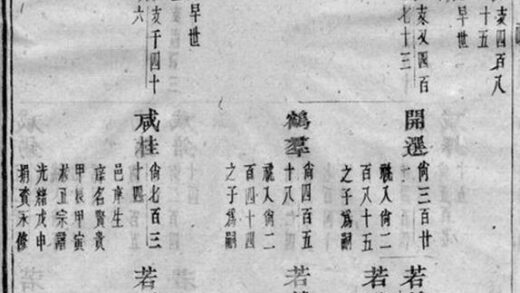 亥四百八
十五
早世
亥又四百
七十三
早世
亥千四十
六
開選
尙三百廿
繼又尙二
百八十五
之子爲嗣
鶴羣
尙四百五
十八
繼又尙二
百四十四
之子爲嗣
咸桂
尙七百三
十四
邑庠生
庠名賢貴
甲寅
宗譜
光緒戊申
捐資承修
若
若
若
若